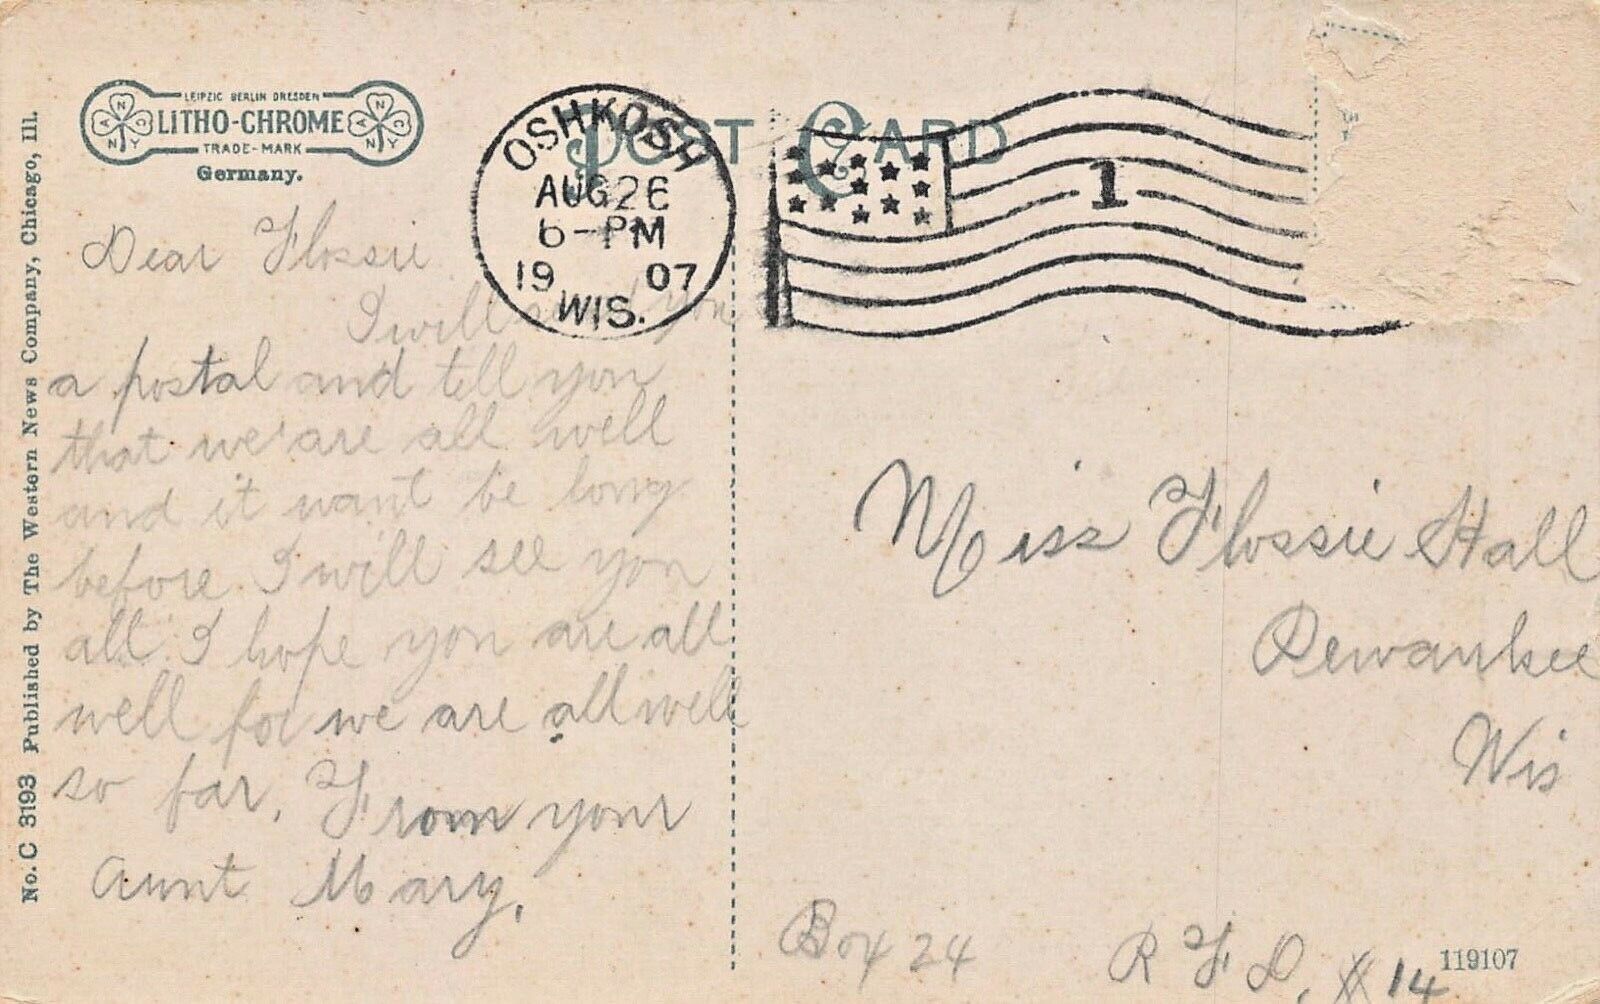 LEIPZIG BERLIN DRESDEN
LITHO-CHROME
TRADE-MARK
Germany.
POST CARD
OSHKOSH
AUG 26
6-PM
1907
WIS.
1
No. C 3193 Published by The Western News Company, Chicago, Ill.
Dear Flossie
I will send you
a postal and tell you
that we are all well
and it want be long
before I will see you
all. I hope you are all
well for we are all well
so far, From your
Aunt Mary,
Miss Flossie Hall
Pewaukee
Wis
Box 24
R F D, # 14
119107